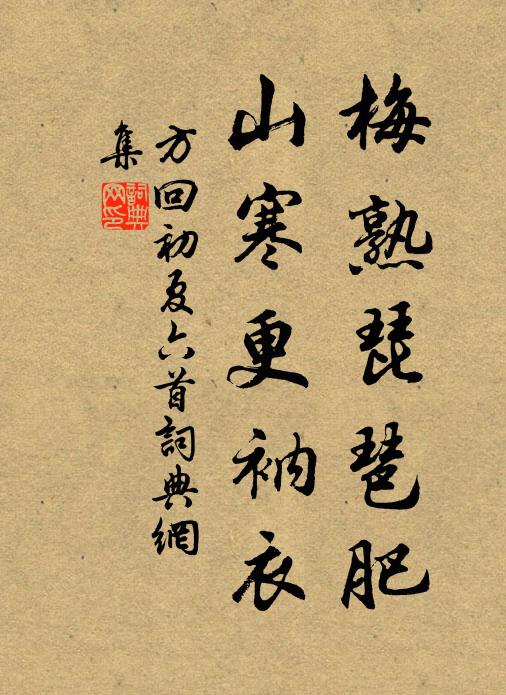 梅熟琵琶肥
山寒更衲衣
方回初夏六首詞典網
集
詞典网印